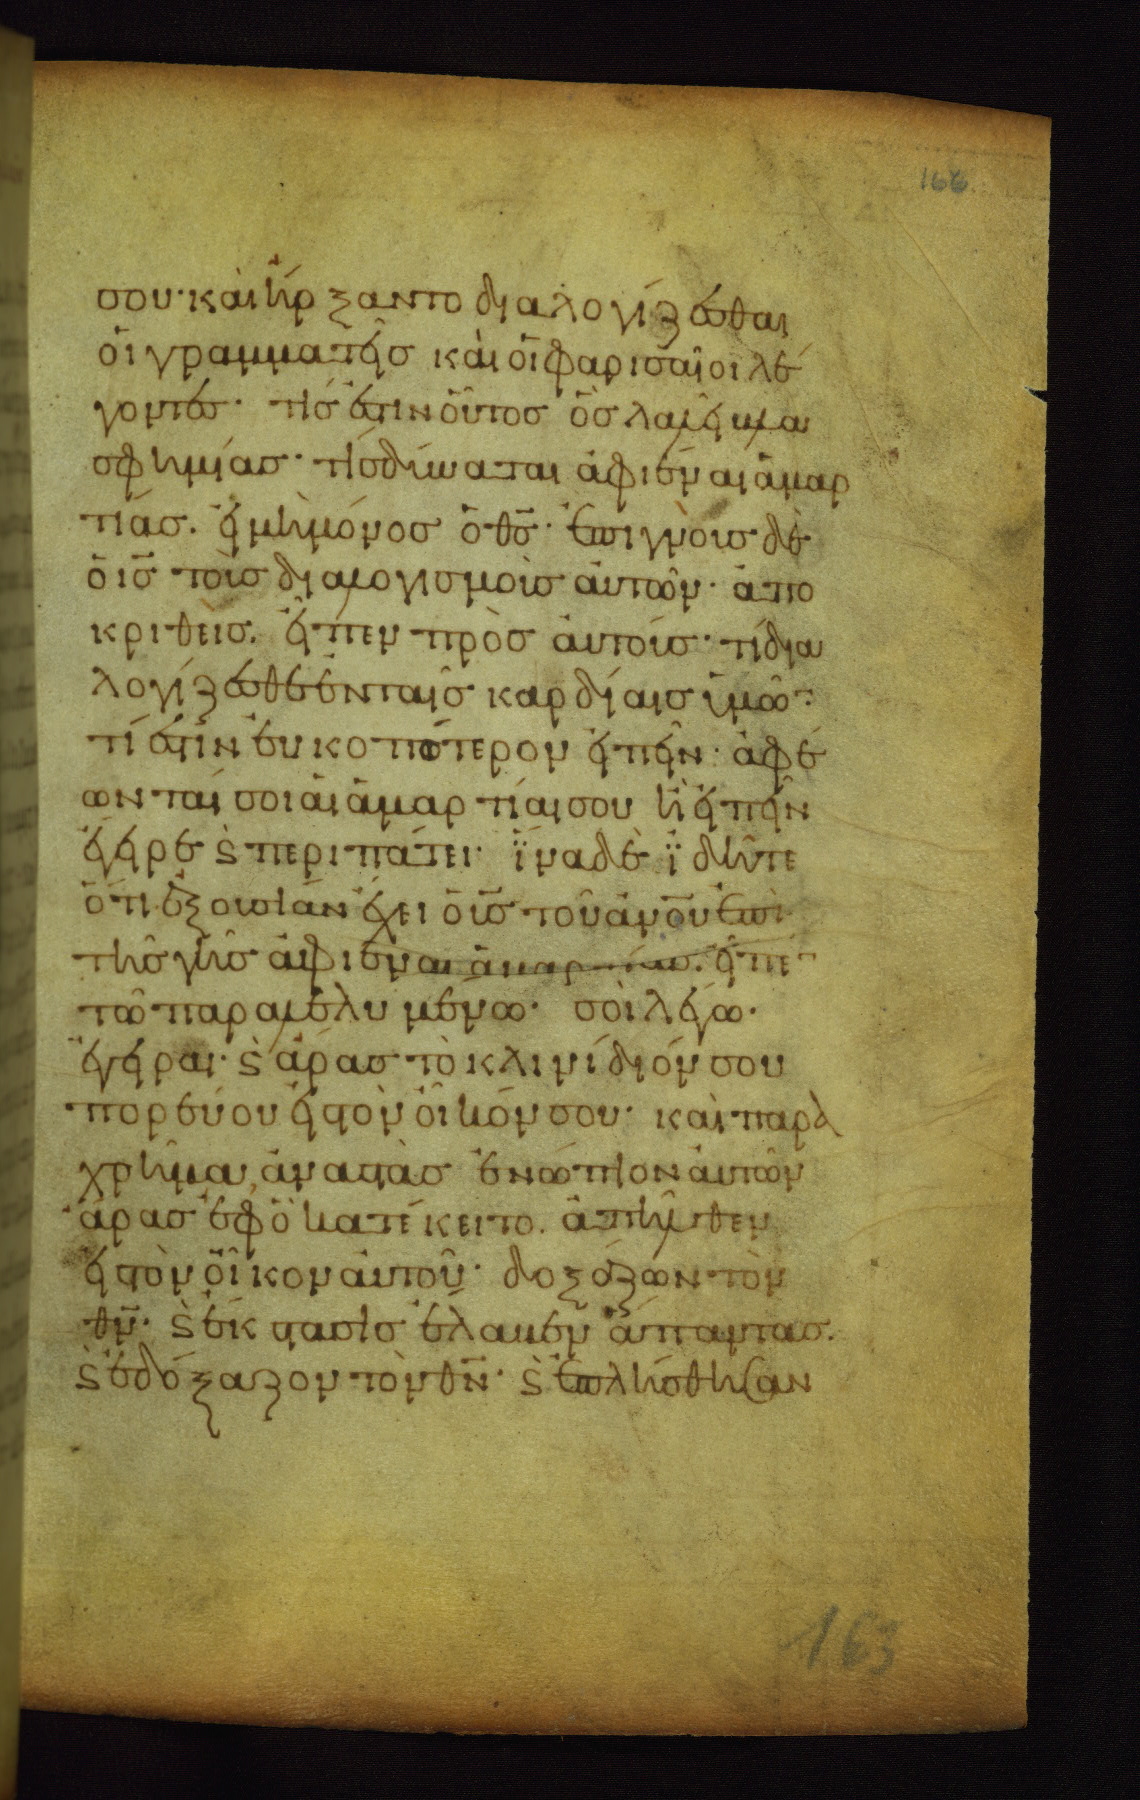 166
σου· καὶ ἤρξαντο διαλογίζεσθαι
ὁι γραμματεῖσ καὶ ὁι φαρισαῖοι λέ
γοντεσ· τίσ ἐστιν οὗτοσ ὃσ λαλεῖ βλα
σφημίασ· τίσ δύναται ἀφιέναι ἁμαρ
τίασ. εἰ μὴ μόνοσ ὁ θσ̅· ἐπιγνοὺσ δὲ
ὁ ισ̅ τοὺσ διαλογισμοὺσ ἀυτῶν· ἀπο
κριθεὶσ. εἶπεν πρὸσ ἀυτούσ· τί δια
λογίζεσθε ἐν ταῖσ καρδίαισ ὑμῶ̅·
τί ἐστιν ἐυκοπώτερον εἰπεῖν· ἀφέ
ωνται σοι ἁι ἁμαρτίαι σου ἢ εἰπεῖν
ἔγειρε ϛ̀ περιπάτει· ἵνα δὲ ἴδητε
ὅτι ἐξουσίαν ἔχει ὁ υἱσ̅ τοῦ ἀνο̅υ ἐπὶ
τῆσ γῆσ ἀφιέναι ἁμαρτίασ. εἶπε̅
τῶ παραλελυμένω· σοὶ λέγω·
ἔγειραι· ϛ̀ ἄρασ τὸ κλινίδιόν σου
πορεύου εἰσ τὸν οἶκόν σου· καὶ παρα
χρῆμα, ἀναστὰσ ἐνώπιον ἀυτῶν
ἄρασ ἐφ ὃ κατέκειτο. ἀπῆλθεν
εἰσ τὸν οἶκον ἀυτοῦ· δοξάζων τὸν
θν̅· ϛ̀ ἔκστασισ ἔλαβεν ἅπαντασ.
ϛ̀ ἐδόξαζον τὸν θν̅· ϛ̀ ἐπλήσθησαν
163